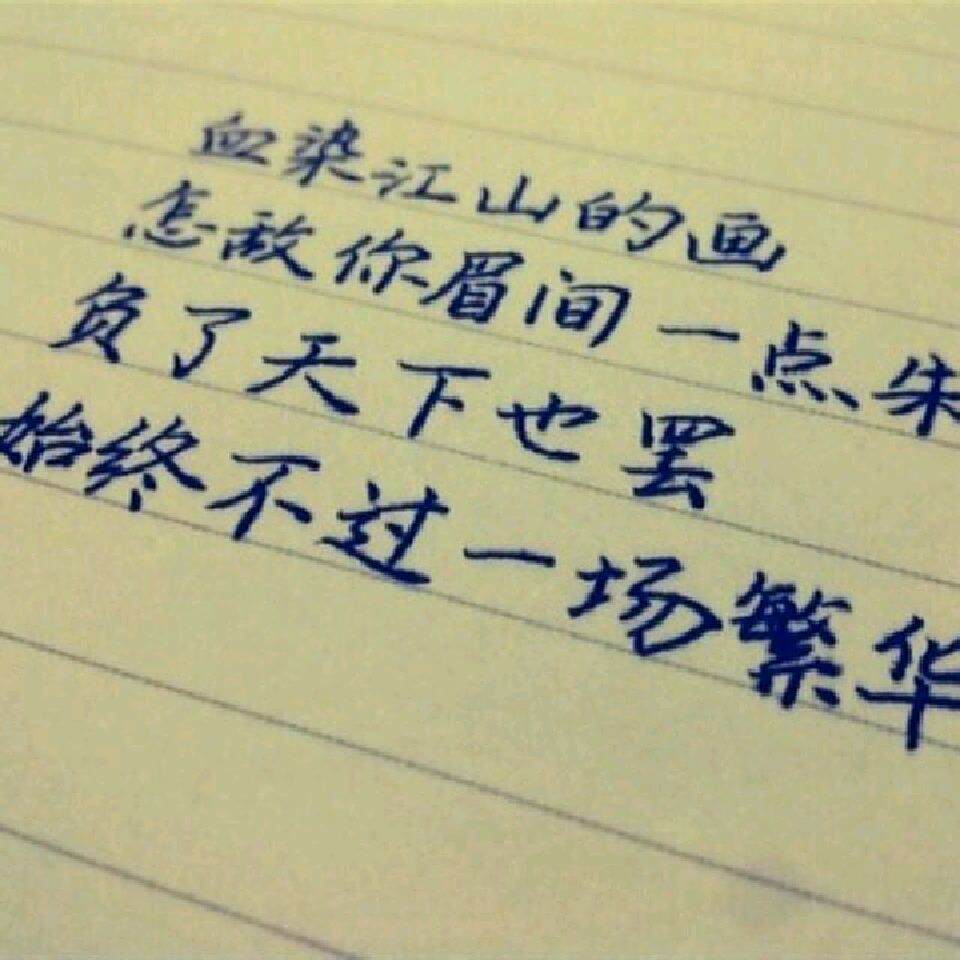 血染江山的画
怎敌你眉间一点朱
负了天下也罢
始终不过一场繁华